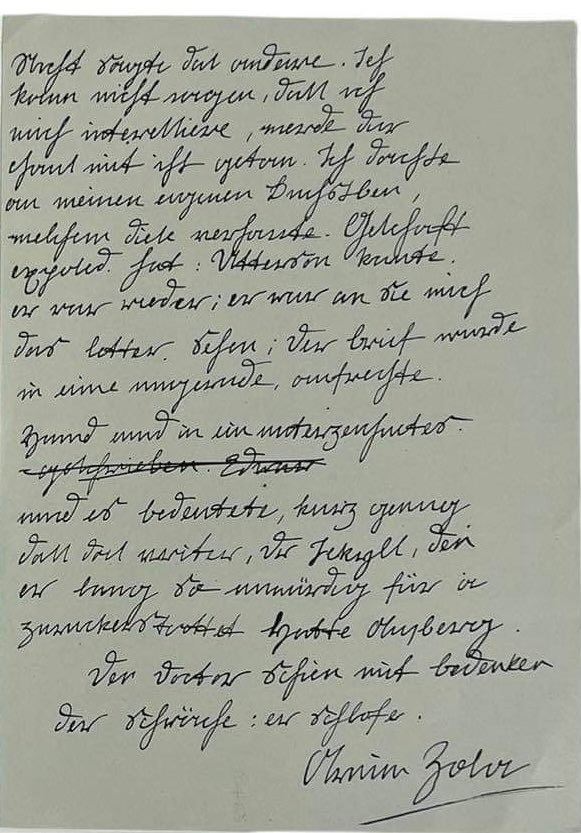 Nicht sagte das andere. Ich
kann nicht sagen, dass ich
mich interessiere, werde der
mit ist getan. Ich dachte
an meinen eigenen Buchstben,
welchem diese verfasste. Geschäft
expoled. hat: Utterson kannte.
er war wieder; er war an sie mich
das letter. sehen; der brief wurde
in eine ungerade, aufrechte.
Hand und in ein
geschrieben. Edwar
und es bedeutete, kurz genug
dass das writer, Dr Jekyll, den
er lang so unwürdig für a
hatte
Der Doctor schien mit bedenken
der schwäche: er schlafe.
Zola